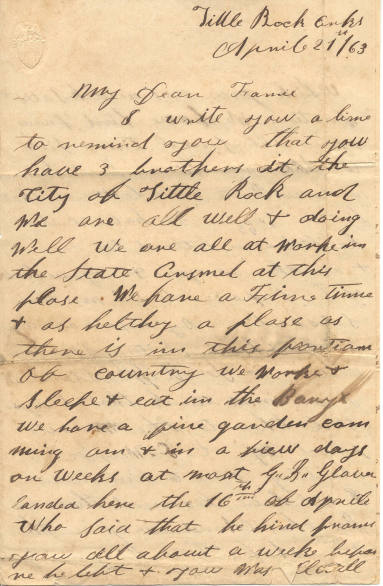 Little Rock Arks
April 21st/63
My Dear Fannie
I write you a line
to remind you that you
have 3 brothers at the
City of Little Rock and
We are all well & doing
Well We are all at Worke in
the State at this
plase. We have a Fine time
& as helthy a plase as
there is in this
of country We Worke &
Sleepe & eat in the
We have a fine garden com
ming on & in a few days
on Weeks at most Glover
landed here the 16th of Aprile
Who Said that he from
you all about a Weeke
he & you Mrs